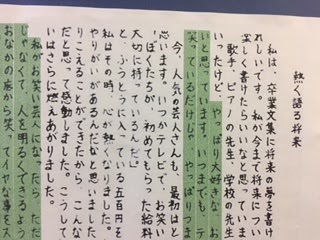 熱く語る将来
私は、卒業文集に将来の夢を書け
れしいです。私が今まで将来につい
楽しく書けたらいいなと思っていま
歌手、ピアノの先生、学校の先生
いったけど、やっぱり大好きな、お
いと思っています。いつも、
笑っているだけじゃ、やっぱりつま
今、人気の芸人さんも、最初はと
思います。いつかテレビで、お笑い
「ぼくたちが、初めてもらった給料
大切に持っているんだ。」
と、ふうとうに入っている五百円を
私はその時、心が熱くなりました。
やりがいがあるんだなと思いました
りこえることができたから、こんな
だと思って感動しました。こうして
いはさらに燃えあがりました。
私がお笑い芸人になったら、ただ
じゃなくて、人を明るくできるよう
おなかの底から笑ってイヤな事をス